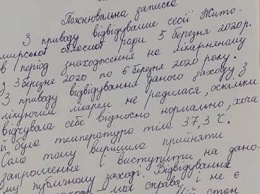 Пояснювальна записка
З приводу відвідування сесії Жито-
мирської обласної ради 5 березня 2020р.
в період знаходження на лікарняному
з 3 березня 2020 по 6 березня 2020 року.
З приводу відвідування даного заходу з
лікуючим лікарем не радилася, оскільки
відчувала себе відносно нормально, хоча
й була температура тіла 37,3°С.
Саме тому вирішила прийняти
запрошення і виступити на дано-
му публічному заході. Відвідування
моя справа, і не є
стан